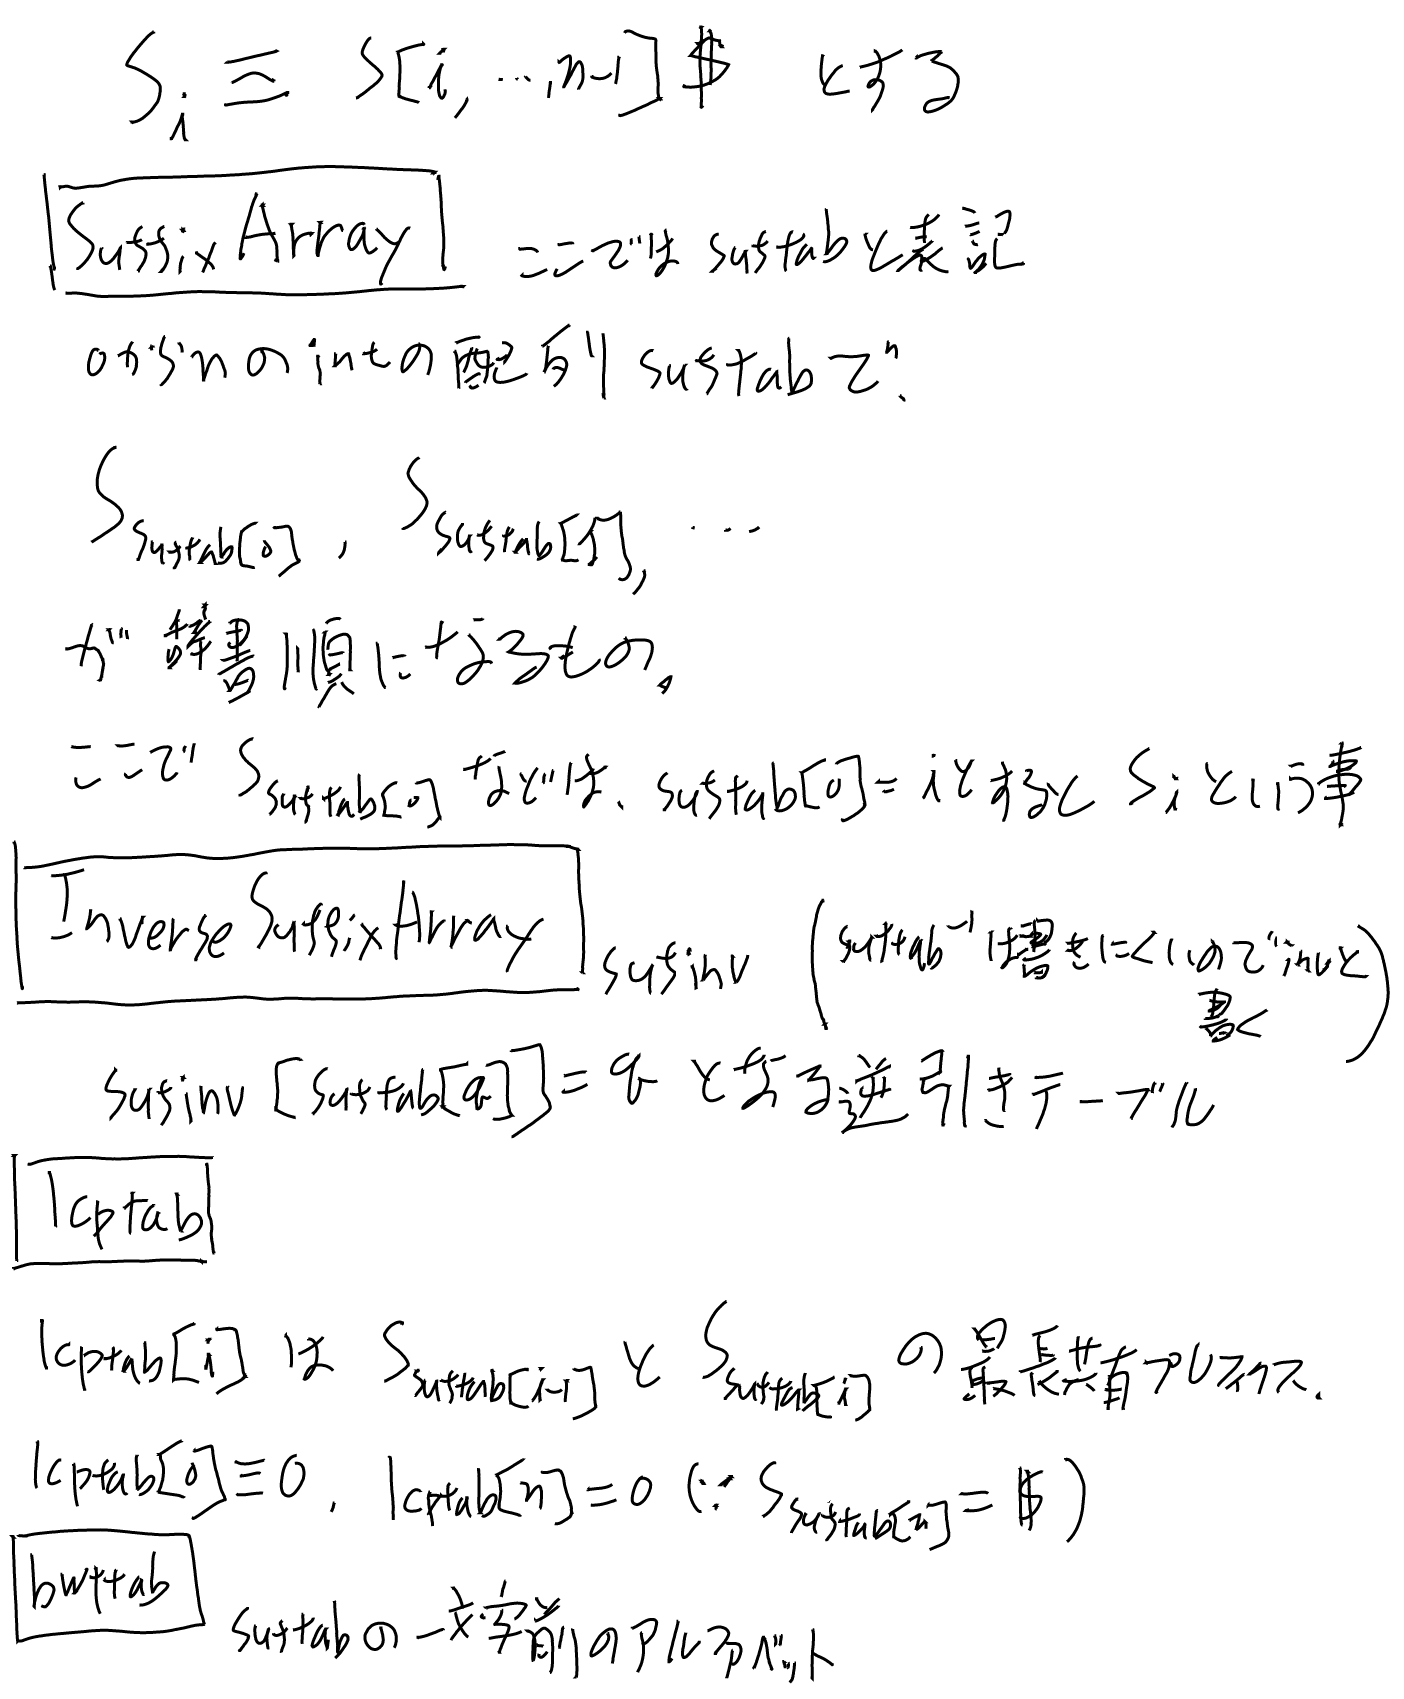 S_i ≡ S[i, …, n-1]$ とする
Suffix Array ここでは suftabと表記
0からnのintの配列 suftabで、
S_suftab[0], S_suftab[1], …
が辞書順になるもの。
ここで S_suftab[0] などは、suftab[0]=iとすると S_i という事
Inverse Suffix Array sufinv (suftab^-1は書きにくいのでinvと
書く)
sufinv[suftab[q]]=q となる逆引きテーブル
lcptab
lcptab[i] は S_suftab[i-1] と S_suftab[i] の最長共有プレフィクス.
lcptab[0]≡0, lcptab[n]=0 (∵ S_suftab[n]=$)
bwttab
suftabの一文字前のアルファベット